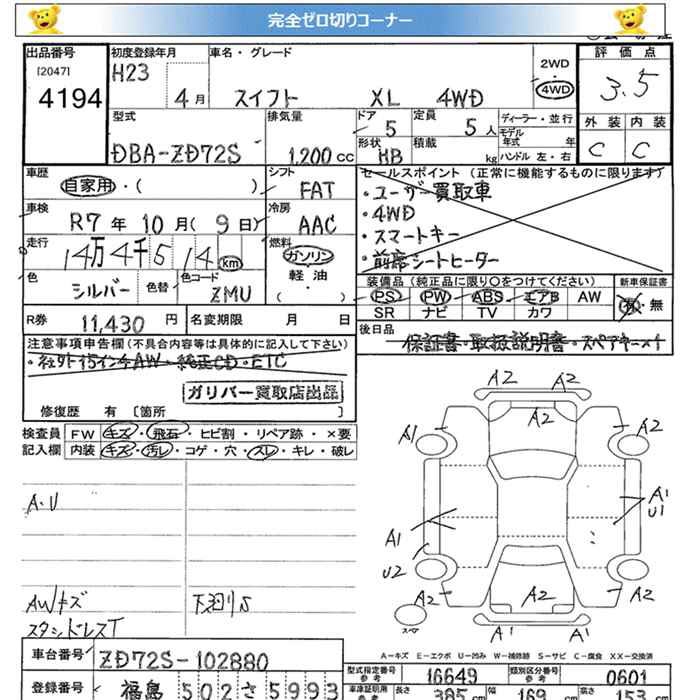 完全ゼロ切りコーナー
出品番号 初度登録年月 車名・グレード 評価点
[2047] H23 2WD
4194 4月 スイフト XL 4WD 4WD 3.5
型式 排気量 ドア 5 定員 5人 ディーラー・並行 外装 内装
モデル年式 年
DBA-ZD72S 1,200cc 形状 HB 積載 kg ハンドル 左・右 C C
車歴 シフト セールスポイント(正常に機能するものに限ります)
自家用・( ) FAT ・ユーザー買取車
車検 冷房 ・4WD
R7年10月(9日) AAC ・スマートキー
走行 燃料 ・前席シートヒーター
14万4千514km ガソリン
色 色替 色コード 軽油 装備品(純正品に限り○をつけてください) 新車保証書
シルバー ZMU ( ) PS PW ABS エアB AW 有・無
SR ナビ TV カワ
R券 11,430円 名変期限 月 日 後日品
注意事項申告欄(不具合内容等は具体的に記入して下さい) 保証書・取扱説明書・スペアキー×1
・社外15インチAW・純正CD・ETC
ガリバー買取店出品
修復歴 有 [箇所 ]
検査員 FW キズ・飛石・ヒビ割・リペア跡・×要
記入欄 内装 キズ・汚レ・コゲ・穴・スレ・キレ・破レ
A2 A2
A1 A2 A2
A.U
A1 A1
U1
U2
AWキズ 下廻りS A2 A2 A2 A2
スタッドレスT スペア A1 A1
A－キズ E－エクボ U－凹み W－補修跡 S－サビ C－腐食 XX－交換済
車台番号 ZD72S-102880 型式指定番号 参考 16649 類別区分番号 参考 0601
登録番号 福島 502さ5993 車庫証明用 参考 長さ 385cm 幅 169cm 高さ 153cm